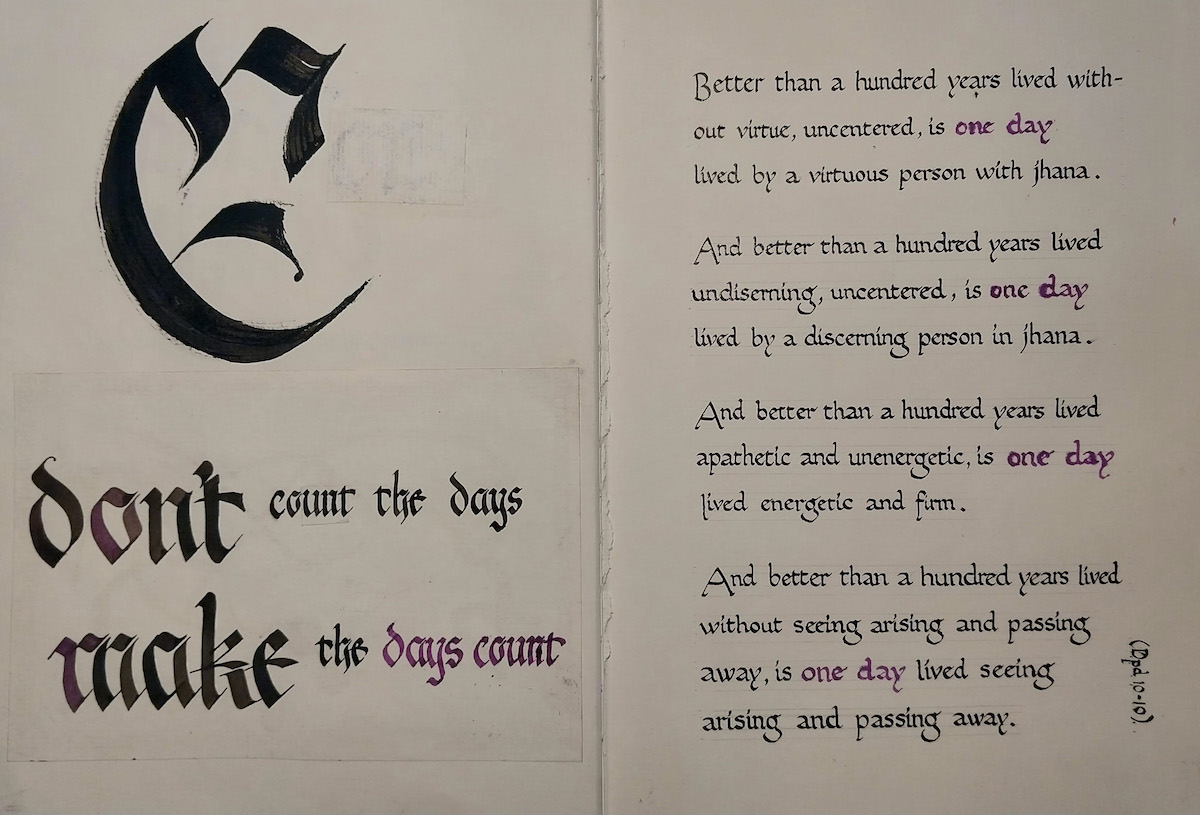 C
don't count the days
make the days count
Better than a hundred years lived with-
out virtue, uncentered, is one day
lived by a virtuous person with jhana.
And better than a hundred years lived
undiserning, uncentered, is one day
lived by a discerning person in jhana.
And better than a hundred years lived
apathetic and unenergetic, is one day
lived energetic and firm.
And better than a hundred years lived
without seeing arising and passing
away, is one day lived seeing
arising and passing away.